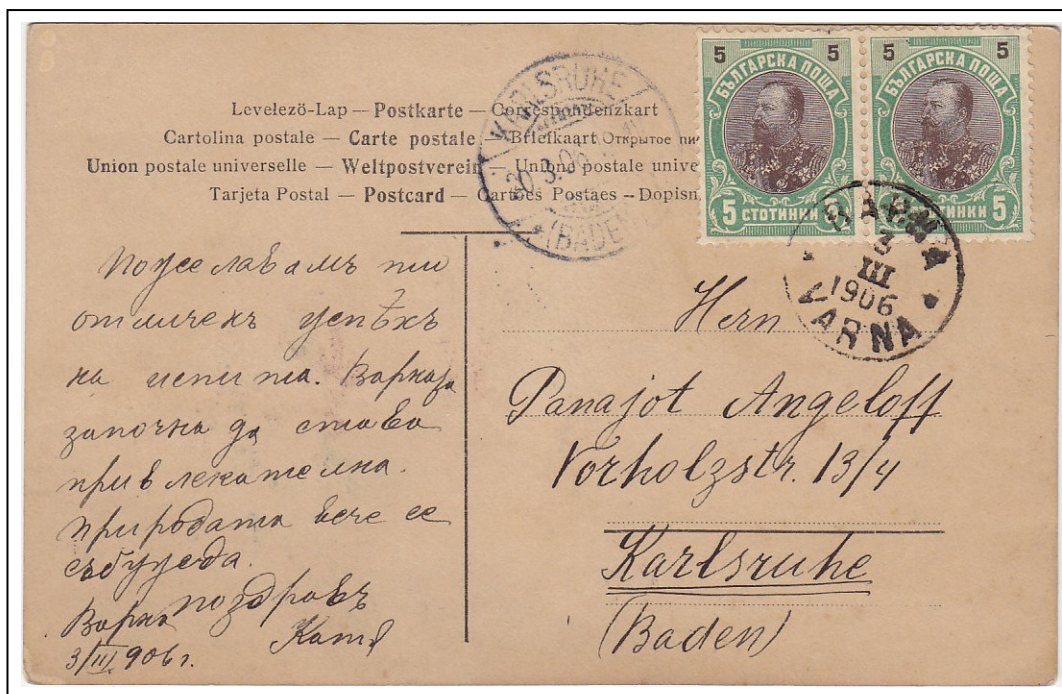 Levelező-Lap — Postkarte — Correspondenzkart
Cartolina postale — Carte postale — Briefkaart Открытое пи
Union postale universelle — Weltpostverein — Union postale unive
Tarjeta Postal — Postcard — Cartões Postaes – Dopisn
KARLSRUHE
(BADEN)
5 5
БЪЛГАРСКА ПОЩА
5 СТОТИНКИ 5
5 5
БЪЛГАРСКА ПОЩА
5 СТОТИНКИ 5
ВАРНА
3
III
1906
VARNA
Пожелавамъ ти
отличенъ успѣхъ
на испита. Варна
започна да става
привлекателна.
Природата вече се
събужда.
поздравъ
Варна
3/III 906 г.
Hern
Panajot Angeloff
Vorholzstr. 13/4
Karlsruhe
(Baden)